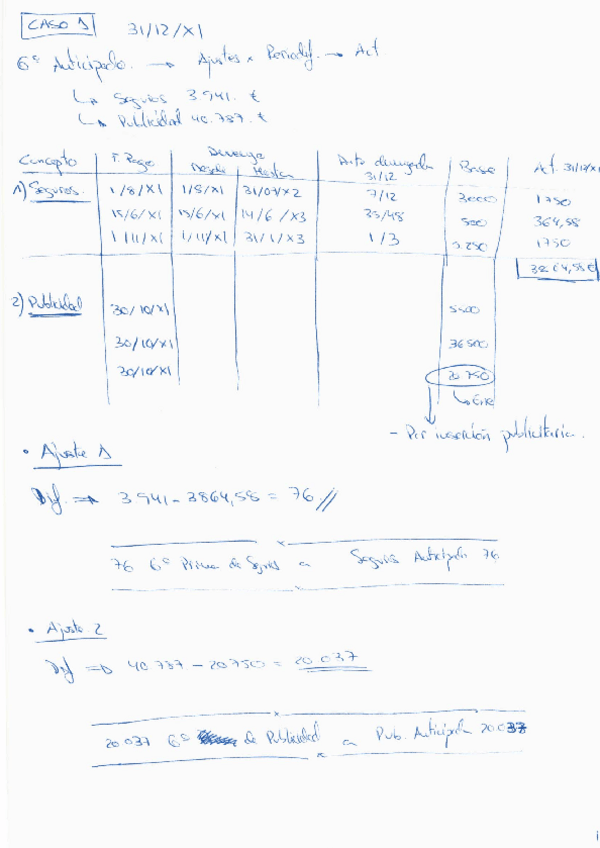 CASO 1 31/12/X1
Gº Anticipado. → Ajustes x Periodif. → Act
↳ Seguros 3.941. €
↳ Publicidad 40.787. €
Concepto F. Pago Devengo Parte devengada Base Act. 31/12/X1
Desde Hasta 31/12
1) Seguros. 1/8/X1 1/8/X1 31/07/X2 7/12 3000 1750
15/6/X1 15/6/X1 14/6/X3 35/48 500 364,58
1/11/X1 1/11/X1 31/1/X3 1/3 5250 1750
3864,58€
2) Publicidad 30/10/X1 5500
30/10/X1 36500
30/10/X1 20750
↳
- Per inserción publicitaria.
• Ajuste 1
Dif. ⇒ 3941 - 3864,58 = 76 //
76 Gº Prima de Seguros a Seguros Anticipado 76
• Ajuste 2
Dif ⇒ 40787 - 20750 = 20037
20037 Gº de Publicidad a Pub. Anticipada 20037